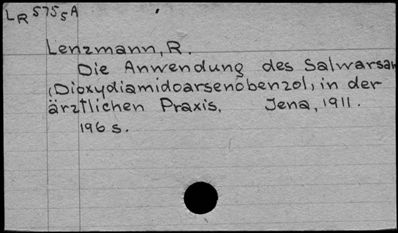 LR 575 5 A
Lenzmann, R.
Die Anwendung des Salwarsan
(Dioxydiamidoarsenobenzol) in der
ärztlichen Praxis. Jena, 1911.
196 s.